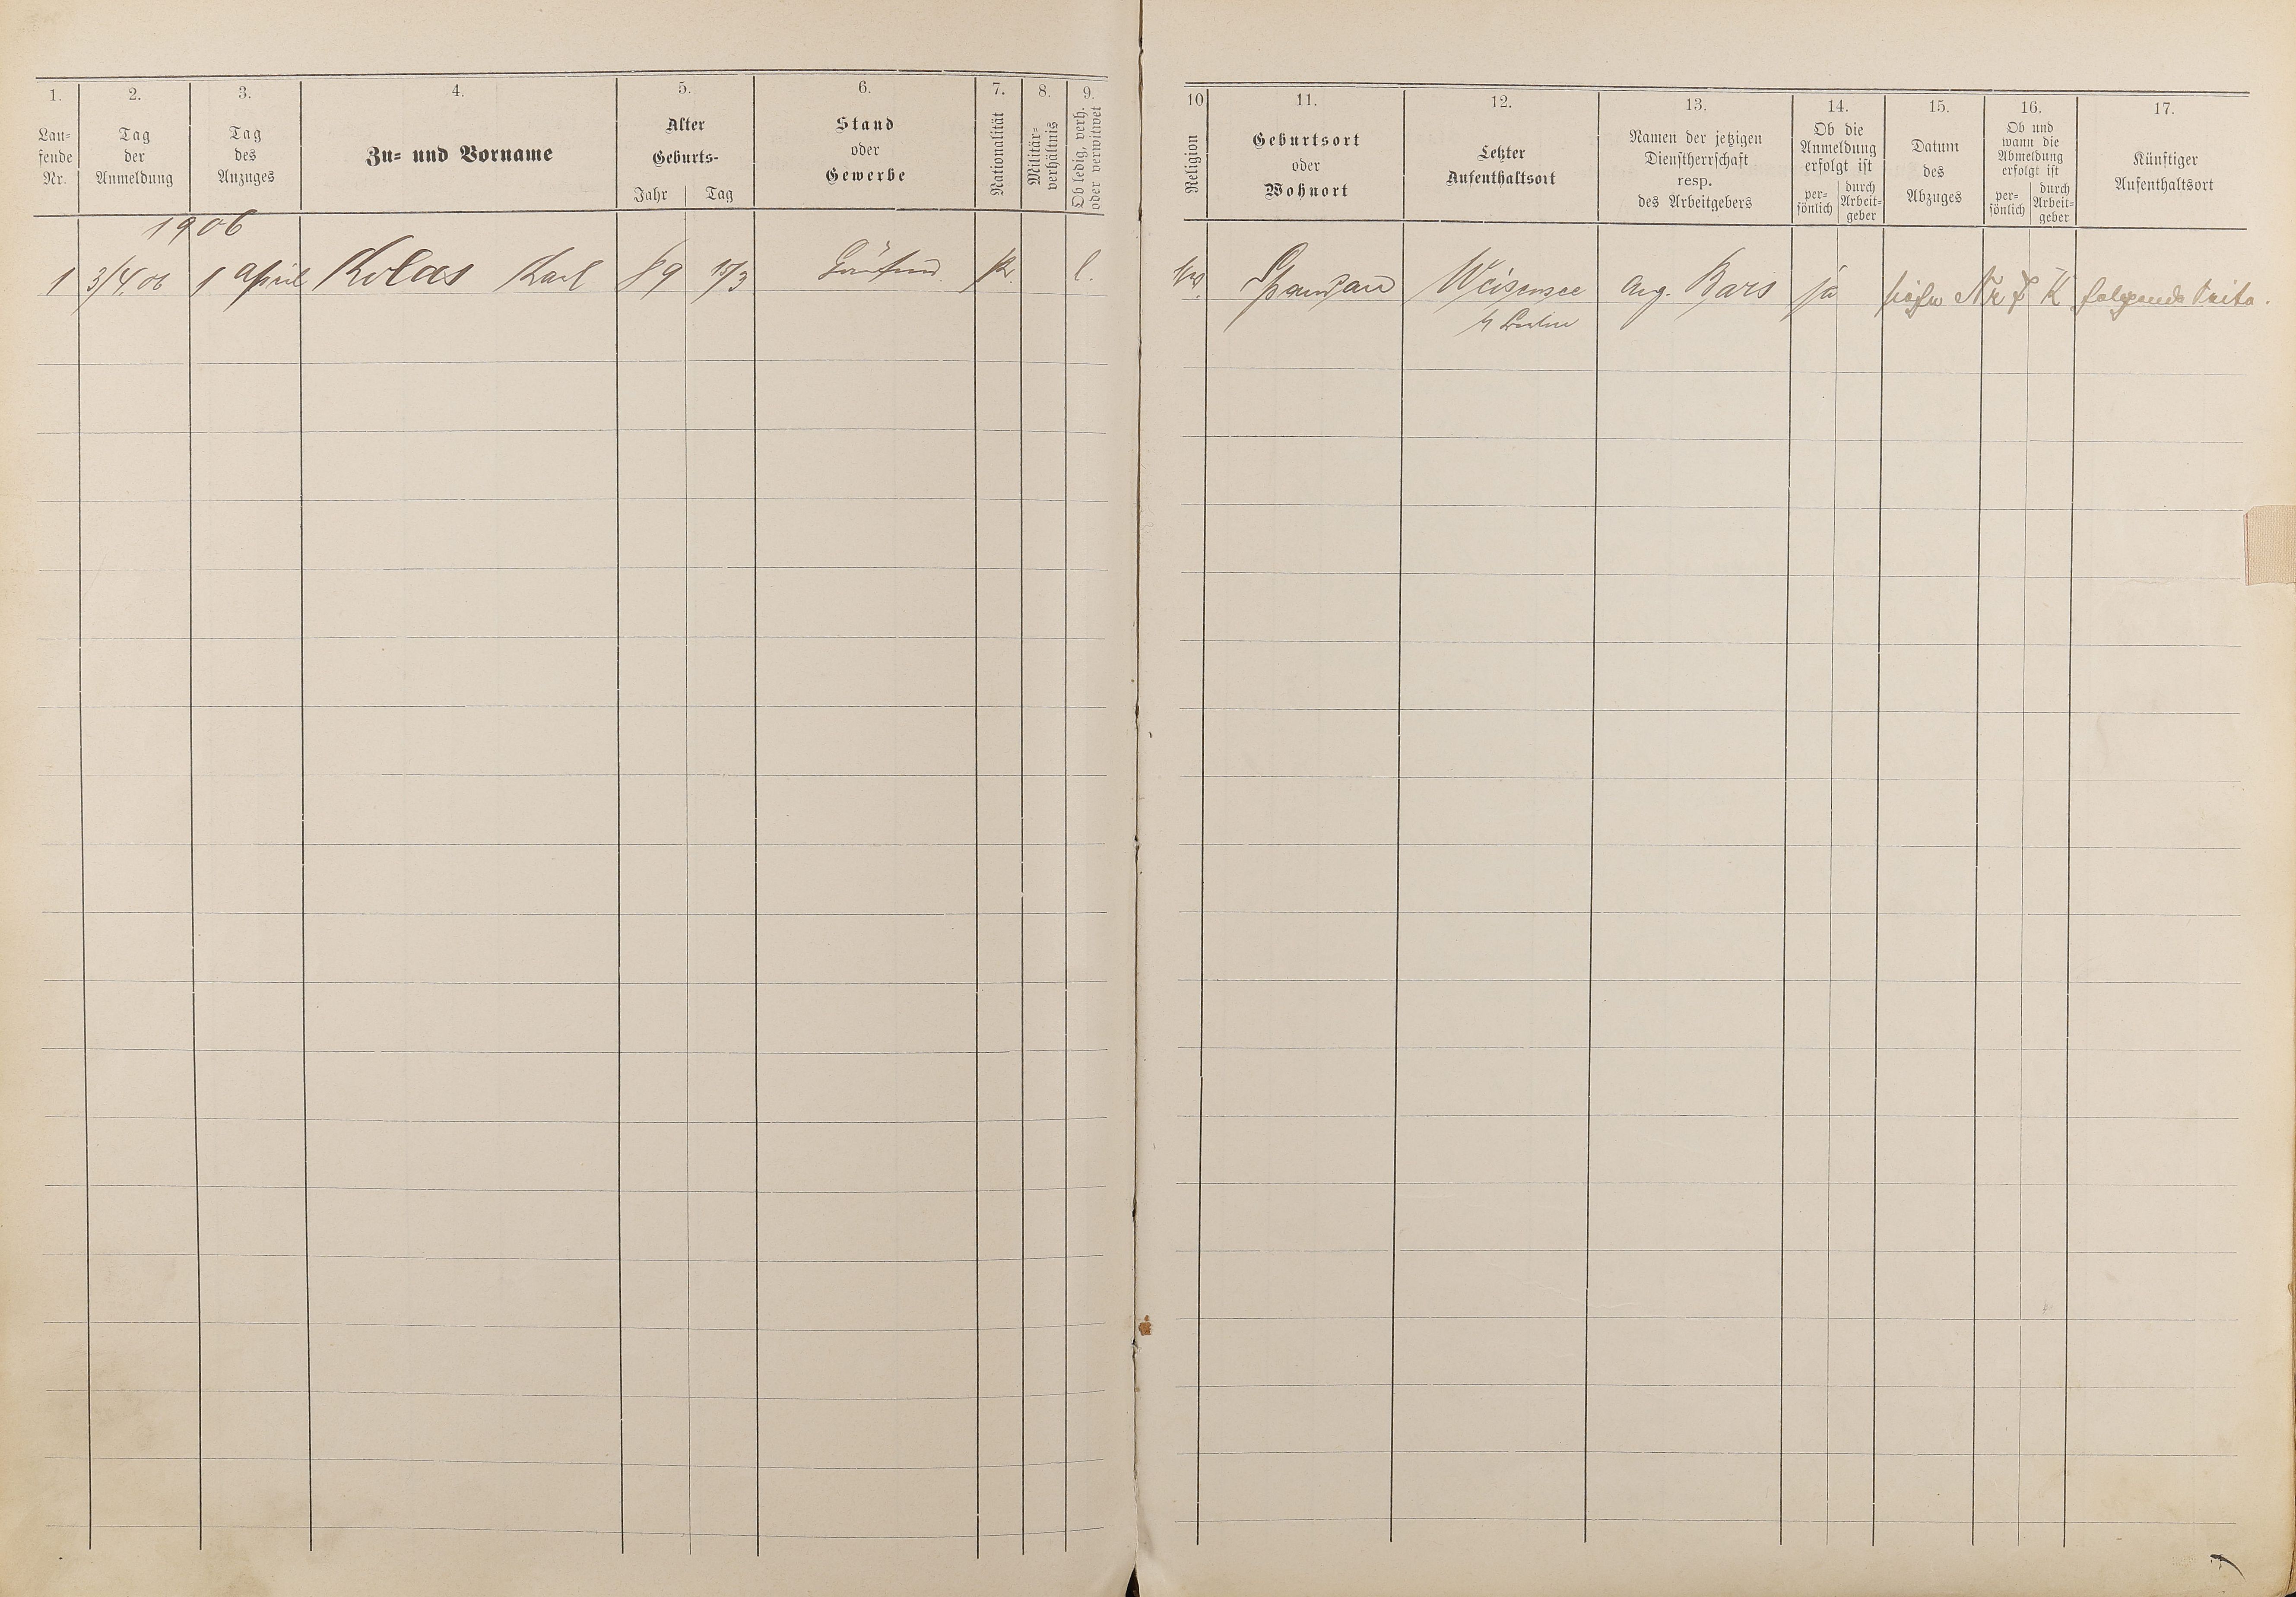 1. 2. 3. 4. 5. 6. 7. 8. 9.
Lau-
fende
Nr.
Tag
der
Anmeldung
Tag
des
Anzuges
Zu- und Vorname
Alter
Geburts-
Jahr Tag
Stand
oder
Gewerbe
Nationalität
Militär-
verhältnis
Ob ledig, verh.
oder verwitwet
1906
1 3/4.06 1 April Kolas Karl 89 15/3 Pr. l.
10 11. 12. 13. 14. 15. 16. 17.
Religion
Geburtsort
oder
Wohnort
Letzter
Aufenthaltsort
Namen der jetzigen
Dienstherrschaft
resp.
des Arbeitgebers
Ob die
Anmeldung
erfolgt ist
per-
sönlich
durch
Arbeit-
geber
Datum
des
Abzuges
Ob und
wann die
Abmeldung
erfolgt ist
per-
sönlich
durch
Arbeit-
geber
Künftiger
Aufenthaltsort
Spandau Weisensee Aug. Bars ja siehe Nr 7 K folgende Seite.
b/ Berlin